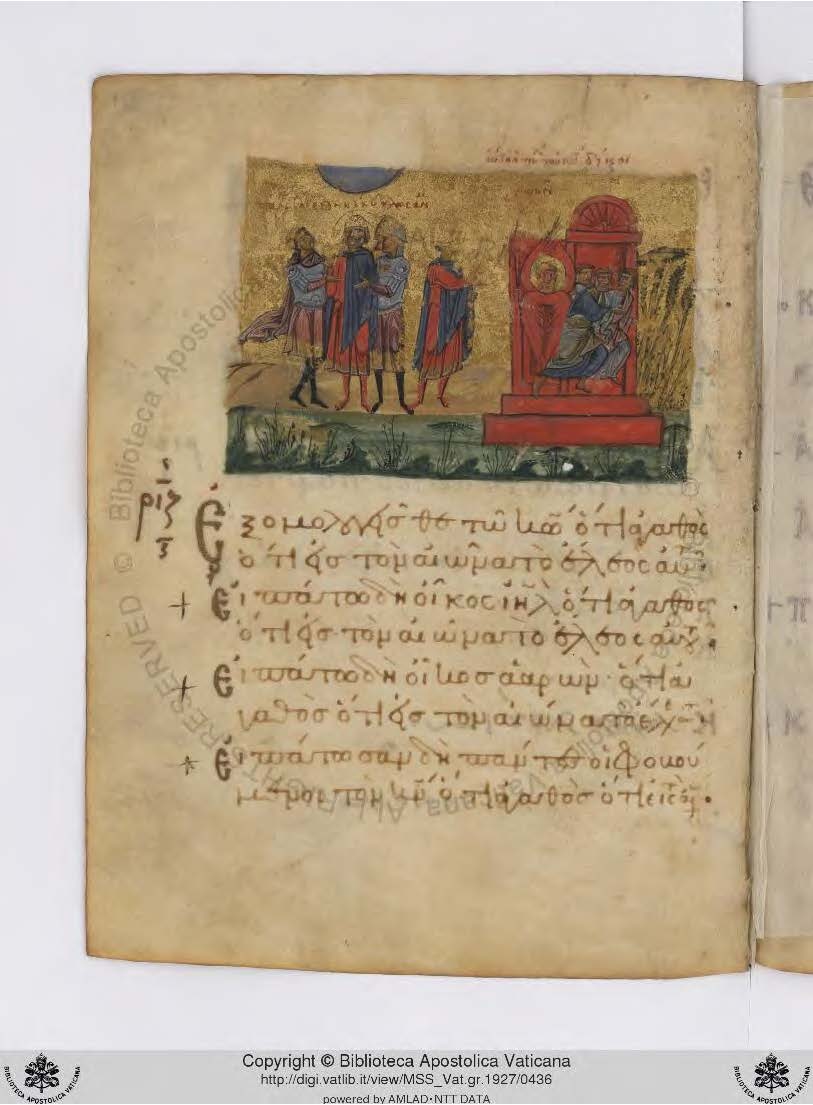 ριζ
Ἐξομολογεῖσθε τῶ κῶ ὅτι ἀγαθὸς
ὅτι εἰς τὸν αἰῶνα τὸ ἔλεος αὐτοῦ.
Εἰπάτω δὴ οἶκος ιηλ ὅτι ἀγαθὸς
ὅτι εἰς τὸν αἰῶνα τὸ ἔλεος αὐτοῦ.
Εἰπάτω δὴ οἶκος ἀαρὼν· ὅτι ἀ
γαθὸς ὅτι εἰς τὸν αἰῶνα τὸ ἔλεος
Εἰπάτωσαν δὴ πάντες οἱ φοβού
μενοι τὸν κν ὅτι ἀγαθὸς ὅτι εἰς τὸν
© Biblioteca Apostolica Vaticana
RIGHTS RESERVED
Copyright © Biblioteca Apostolica Vaticana
http://digi.vatlib.it/view/MSS_Vat.gr.1927/0436
powered by AMLAD•NTT DATA
BIBLIOTECA APOSTOLICA VATICANA
BIBLIOTECA APOSTOLICA VATICANA